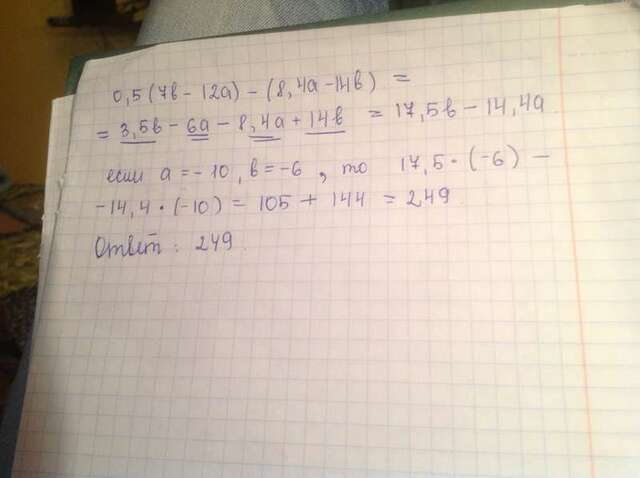 0,5(7в - 12а) - (8,4а - 14в) =
= 3,5в - 6а - 8,4а + 14в = 17,5в - 14,4а
если а = - 10, в = -6, то 17,5 · (-6) -
-14,4 · (-10) = 105 + 144 = 249.
Ответ: 249.